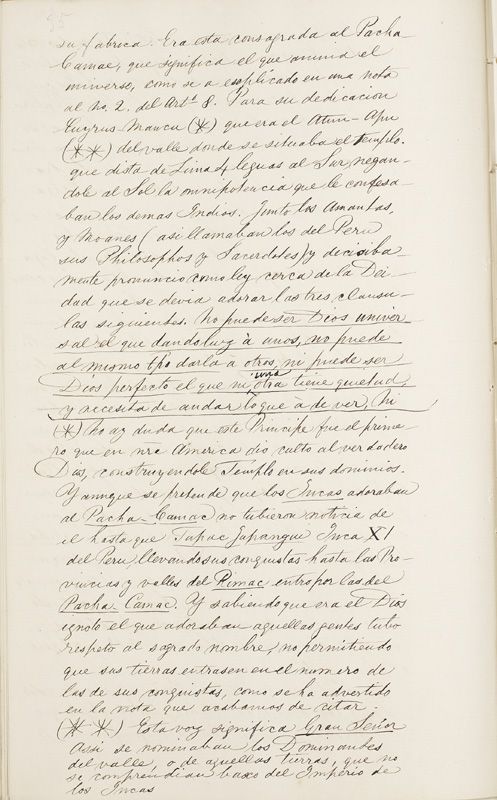 su fabrica. Era esta consagrada al Pacha
Camac, que significa el que anima el
universo, como se a esplicado en una nota
al no. 2. del Artº 8. Para su dedicacion
Eugrus-Mancu (*) que era el Atun-Apu
(**) del valle donde se situaba el templo.
que dista de Lima 4 leguas al Sur negan-
dole al Sol la omnipotencia que le confesa-
ban los demas Indios. Junto los Amautas,
y Moanes (asi llamaban los del Peru
sus Philosophos y Sacerdotes) y decisiba-
mente pronuncio como ley cerca de la Dei-
dad que se devia adorar las tres clausu-
las siguientes. No puede ser Dios univer
sal el que dando luz à unos, no puede
al mismo tpo darla a otros, ni puede ser
Dios perfecto el que ni una otra tiene quietud,
y necesita de andar lo que à de ver, Ni
(*) No ay duda que este Principe fue el prime-
ro que en nra America dio culto al verdadero
Dios, construyendole Templo en sus dominios.
Y aunque se pretende que los Incas adoraban
al Pacha-Camac no tubieron noticia de
el hasta que Tupac Jupangui Inca XI
del Peru, llevando sus conquistas hasta las Pro-
vincias y valles del Rimac entro por las del
Pacha Camac. Y sabiendo que era el Dios
ignoto el que adoraban aquellas gentes tubo
respeto al sagrado nombre, no permitiendo
que sus tierras entrasen en el numero de
las de sus conquistas, como se ha advertido
en la nota que acabamos de citar.
(**) Esta voz significa Gran Señor
Assi se nominaban los Dominantes
del valle, o de aquellas tierras, que no
se comprendian baxo del Imperio de
los Incas